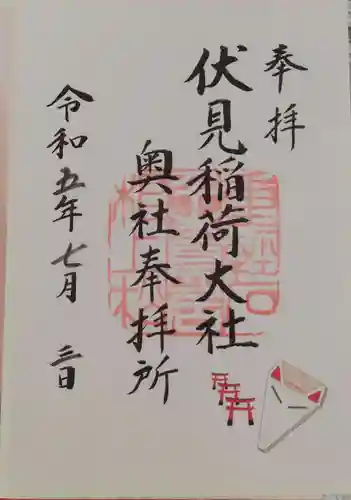 奉拝
伏見稲荷大社
奥社奉拝所
令和五年七月三日